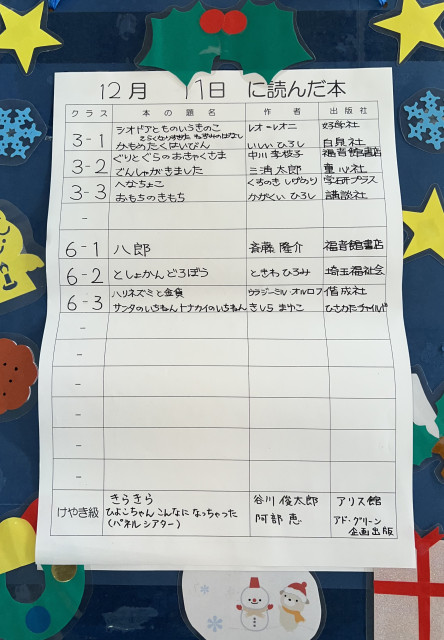 12月 11日 に読んだ本
クラス 本の題名 作者 出版社
3-1 シオドアとものいうきのこ レオ=レオニ 好学社
えらくなりすぎた ねずみのはなし
かものたくはいびん いしい ひろし 白泉社
3-2 ぐりとぐらのおきゃくさま 中川 李枝子 福音館書店
でんしゃがきました 三浦 太郎 童心社
3-3 へなちょこ くすのき しげのり 学研プラス
おもちのきもち かがくい ひろし 講談社
-
6-1 八郎 斎藤 隆介 福音館書店
6-2 としょかん どろぼう ときわ ひろみ 埼玉福祉会
6-3 ハリネズミと金貨 ウラジーミル・オルロフ 偕成社
サンタのいちねん トナカイのいちねん きしら まゆこ ひさかたチャイルド
-
-
-
-
-
けやき級 きらきら 谷川 俊太郎 アリス館
ひよこちゃん こんなに なっちゃった 阿部 恵 アド・グリーン
(パネルシアター) 企画出版